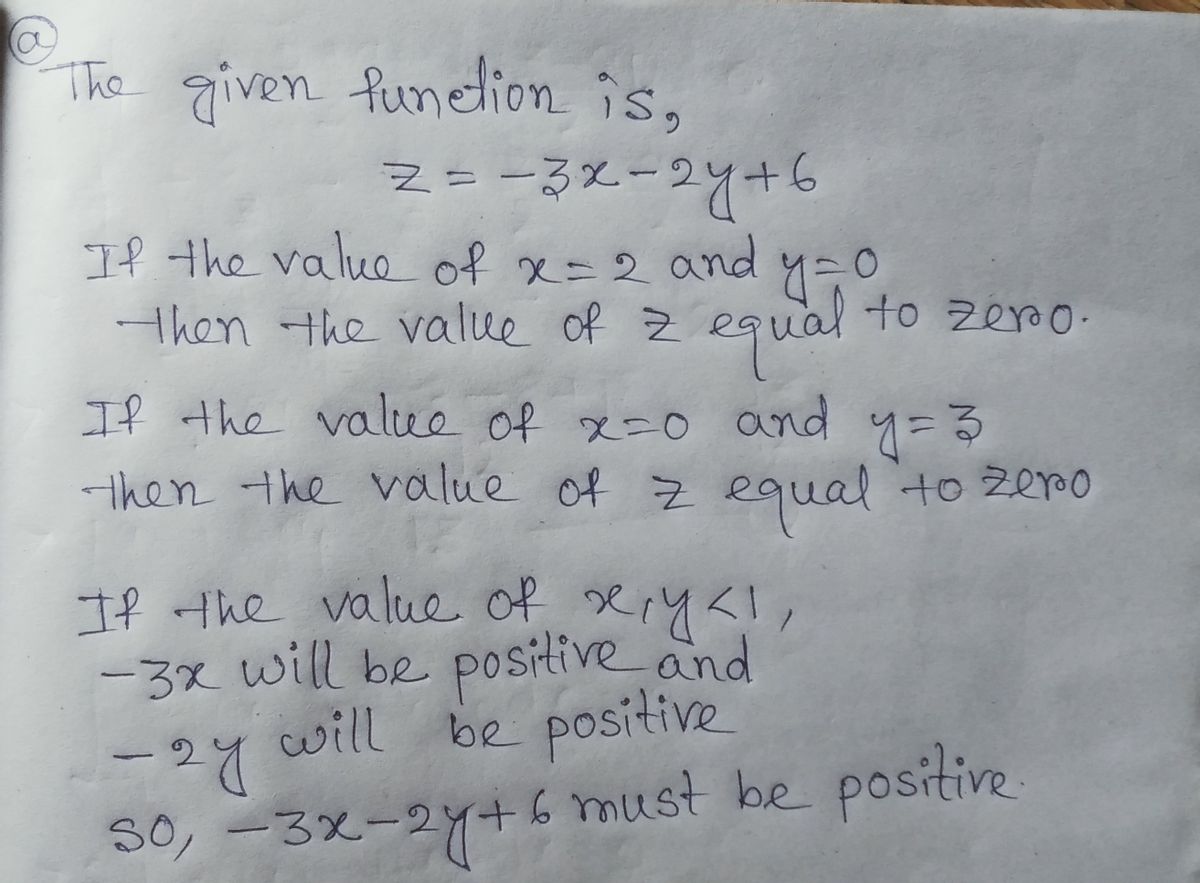 ⓐ
The given function is,
z = -3x - 2y + 6
If the value of x = 2 and y = 0
then the value of z equal to zero.
If the value of x = 0 and y = 3
then the value of z equal to zero
If the value of x, y < 1,
-3x will be positive and
-2y will be positive
so, -3x - 2y + 6 must be positive.